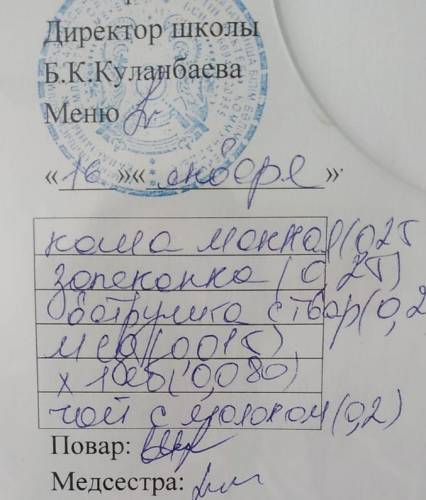 Директор школы
Б.К.Куланбаева
Меню
«16»« января»
каша манная(0,25
запеканка (0,25)
ватрушка с твор(0,2
мёд(0,015)
хлеб(0,080)
чай с молоком(0,2)
Повар:
Медсестра: